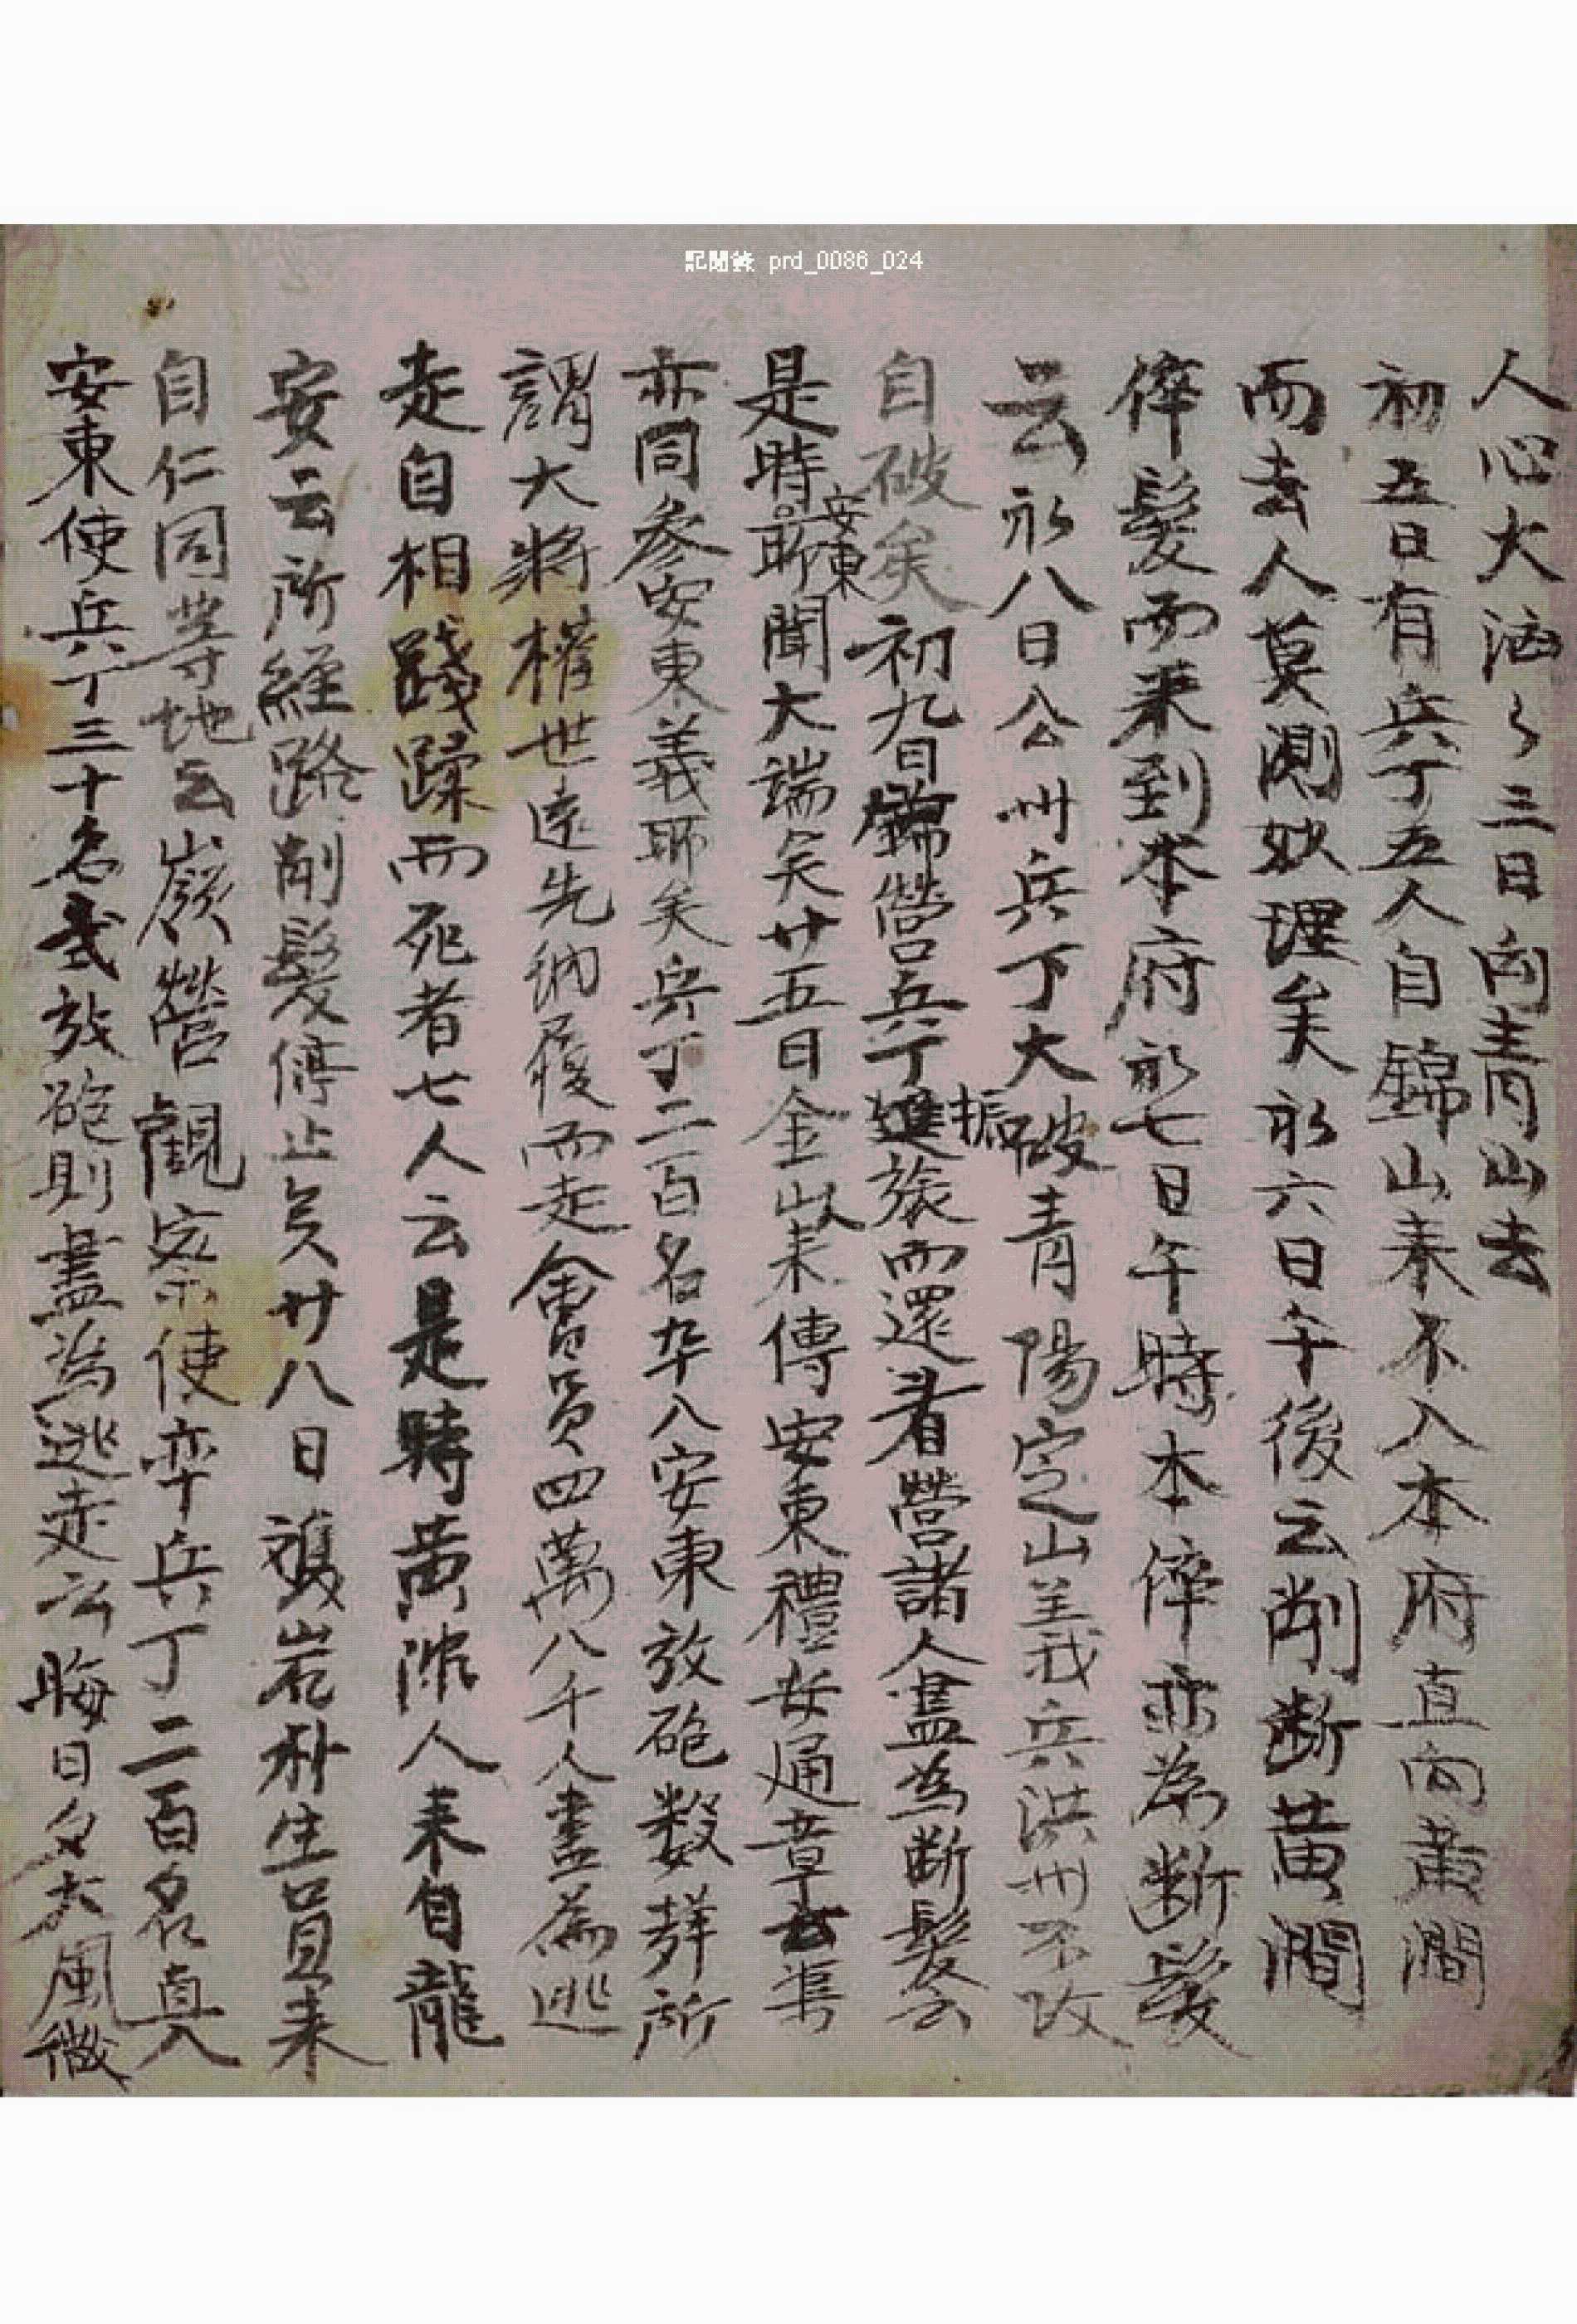 記聞錄 prd_0086_024
人心大洶々三日向青山去
初五日有兵丁五人自錦山來不入本府直向黃澗
而去人莫測妙理矣初六日午後云削斷黃澗
倅髮而來到本府初七日午時本倅亦爲斷髮
云初八日公州兵丁大破青陽定山義兵洪州不攻
自破矣初九日錦營兵丁振旅而還着營諸人盡爲斷髮云
是時安東聊聞大端矣廿五日金山以來傳安東禮安通章去
亦同參安東義聊矣兵丁二百名卒入安東放砲數聲所
謂大將權世淵先納履而走會員四萬八千人盡爲逃
走自相踐蹂而死者七人云是時黃澗人來自龍
安云所經路削髮停止矣廿八日岩朴生員來
自仁同等地云嶺營觀察使率兵丁二百名直入
安東使兵丁三十名放砲則盡爲逃走云晦日夕大風微